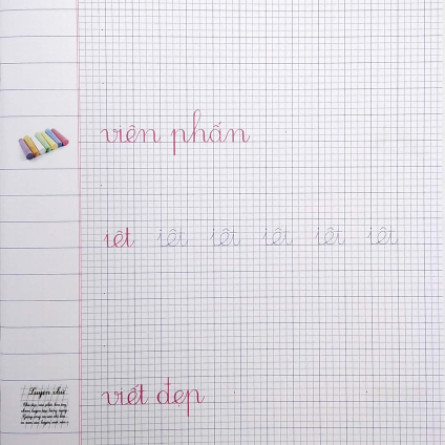 viên phấn
iêt iêt iêt iêt iêt iêt
viết đẹp
Luyện chữ